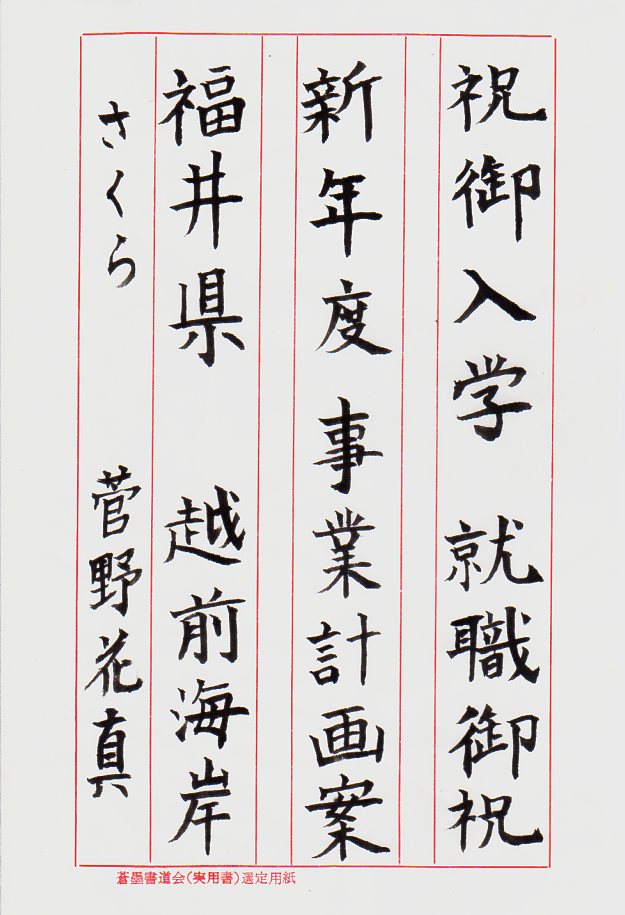 祝御入学 就職御祝
新年度 事業計画案
福井県 越前海岸
さくら 菅野花真
蒼墨書道会(実用書)選定用紙